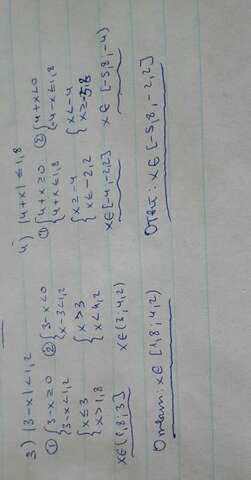 3) |3-x|<1,2
① {3-x≥0
{3-x<1,2
{x≤3
{x>1,8
x∈(1,8; 3]
② {3-x<0
{x-3<1,2
{x>3
{x<4,2
x∈(3; 4,2)
Ответ: x∈[1,8; 4,2)
4) |4+x|≤1,8
① {4+x≥0
{4+x≤1,8
{x≥-4
{x≤-2,2
x∈[-4; -2,2]
② {4+x<0
{-4-x≤1,8
{x<-4
{x≥-5,8
x∈[-5,8; -4)
Ответ: x∈[-5,8; -2,2]